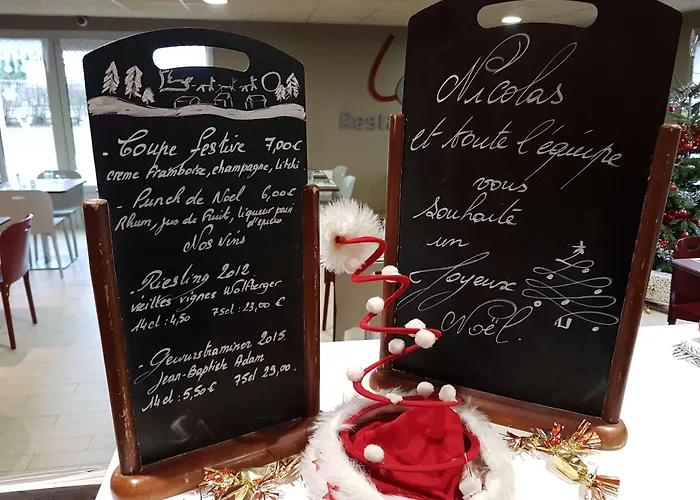 - Coupe festive 7,00€
creme Framboise, champagne, litchi
- Punch de Noël 6,00€
Rhum, jus de Fruit, liqueur pain
d'épices
Nos Vins
- Riesling 2012
vieilles vignes Wolfberger
14cl : 4,50 75cl : 23,00 €
- Gewurstraminer 2015.
Jean-Baptiste Adam
14cl : 5,50 € 75cl 29,00.
Nicolas
et toute l'équipe
vous
souhaite
un
Joyeux
Noël.